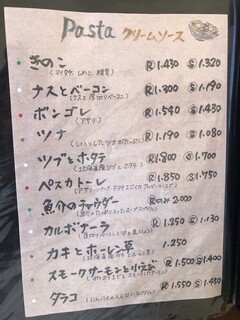 Pasta クリームソース
きのこ Ⓡ1.430 Ⓢ1.320
(マイタケ、しめじ、椎茸)
ナスとベーコン Ⓡ1.300 Ⓢ1.190
ボンゴレ Ⓡ1.540 Ⓢ1.430
(アサリ)
ツナ Ⓡ1.190 Ⓢ1.080
ツブとホタテ Ⓡ1.800 Ⓢ1.700
ペスカトーレ Ⓡ1.850 Ⓢ1.750
魚介のチャウダー Ⓡのみ 2.000
カルボナーラ Ⓡ1.250 Ⓢ1.130
カキとホーレン草 1.250
スモークサーモンと小えび Ⓡ1.500 Ⓢ1.400
タラコ Ⓡ1.550 Ⓢ1.450